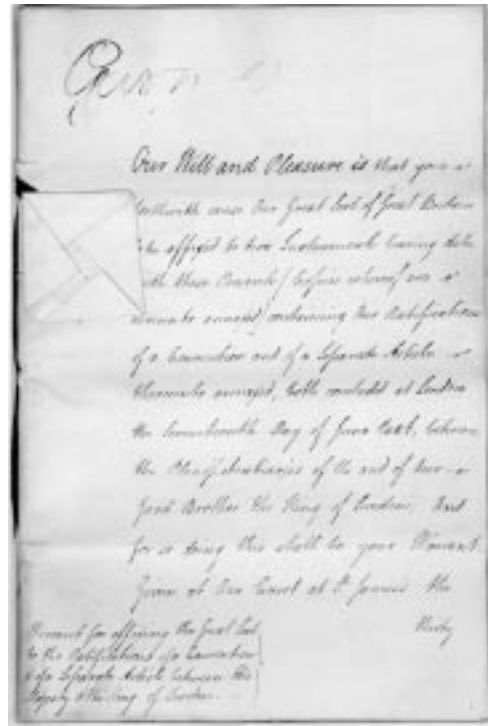 Our Will and Pleasure is that you
forthwith cause Our Great Seal of Great Britain
to be affixed to two Instruments bearing date
with these Presents
annexed containing Our Ratifications
of a Convention and of a Separate Article
thereunto annexed, both concluded at London
the Day of June last, between
the Plenipotentiaries of Us and of Our
Good Brother the King of Sweden; And
for so doing this shall be your Warrant
Given at Our Court at St James's the
Warrant for affixing the Great Seal
to the Ratifications of a Convention
& of a Separate Article between His
Majesty & the King of Sweden.